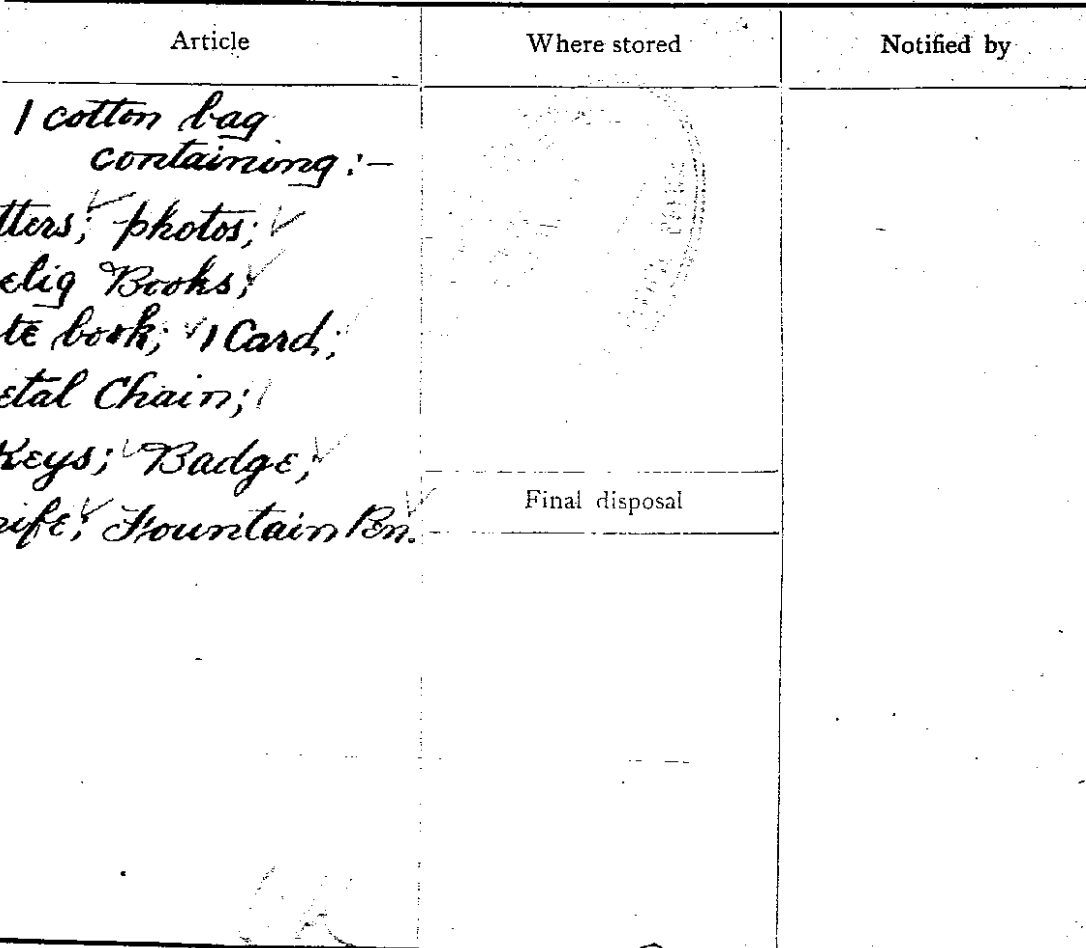 Article
Where stored
Notified by
1 cotton bag
containing:-
tters; photos;
elig Books;
te book; 1 Card;
etal Chain;
Keys; Badge;
nife; Fountain Pen.
Final disposal